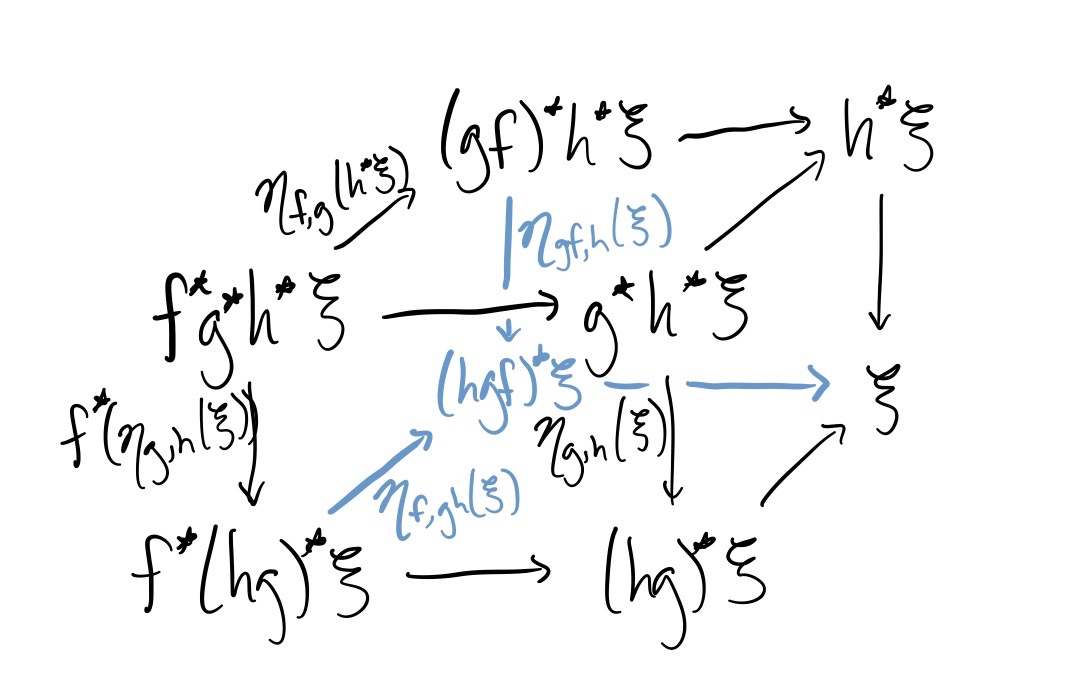 (gf)*h*ξ h*ξ
η_{f,g}(h*ξ)
η_{gf,h}(ξ)
f*g*h*ξ g*h*ξ
(hgf)*ξ ξ
f*(η_{g,h}(ξ)) η_{g,h}(ξ)
η_{f,gh}(ξ)
f*(hg)*ξ (hg)*ξ